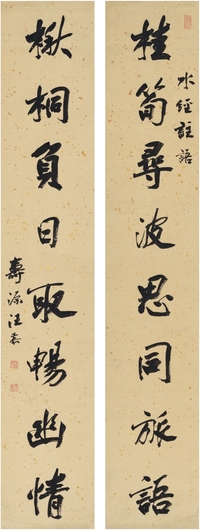 桂筍尋波思同旅語
水經註語
楸桐負日取暢幽情
壽源汪恭